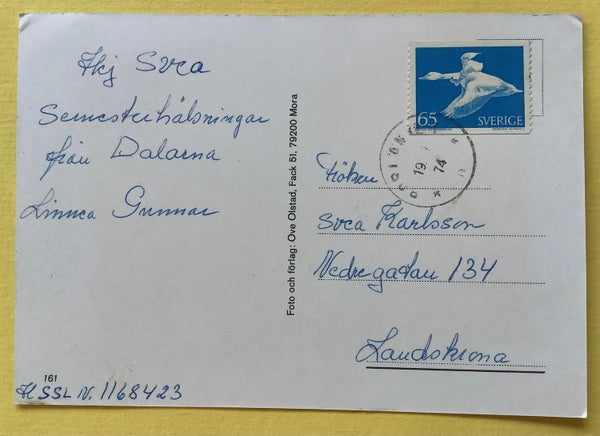 Hej Svea
Semesterhälsningar
från Dalarna
Linnea Gunnar
161
HSSL N. 1168423
Foto och förlag: Ove Olstad, Fack 51, 79200 Mora
65
SVERIGE
19
74
Fröken
Svea Karlsson
Nedregatan 134
Landskrona